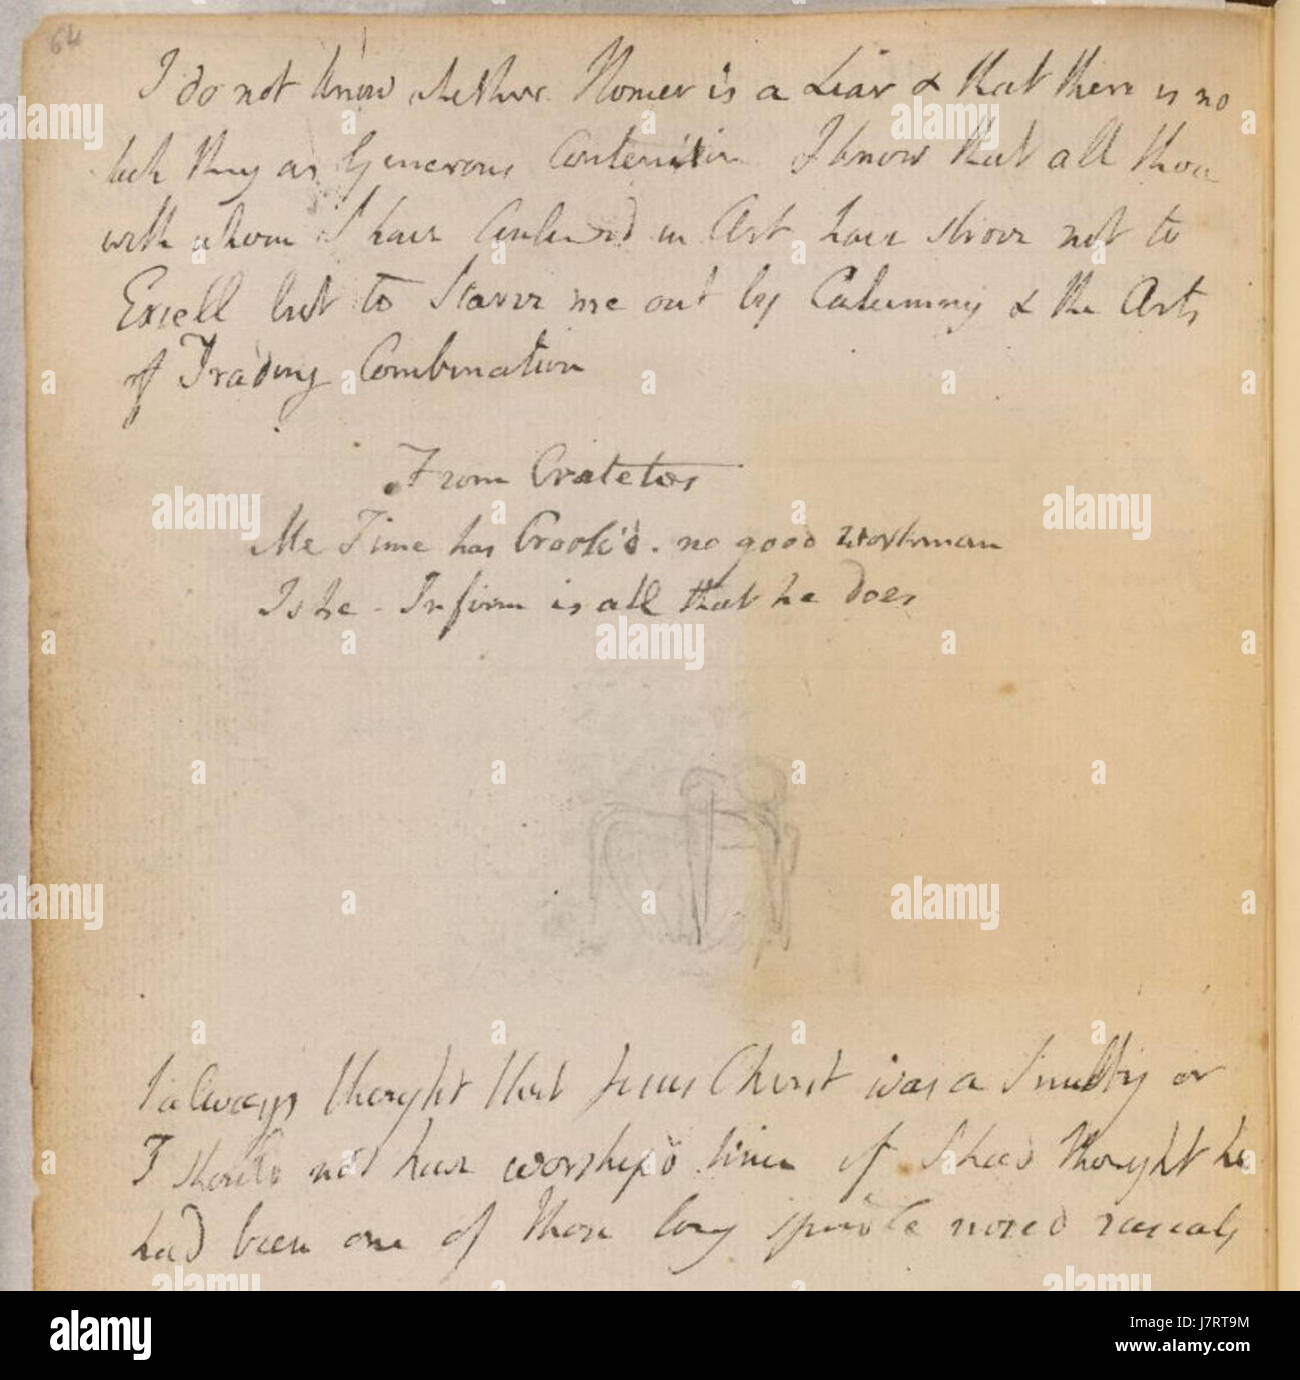 64
I do not know whether Homer is a Liar & that there is no
such thing as Generous Contention I know that all those
with whom I have Contended in Art have strove not to
Excell but to Starve me out by Calumny & the Arts
of Trading Combination
From Cratetos
Me Time has Crook'd. no good workman
Is he - Infirm is all that he does
I always thought that Jesus Christ was a Snubby or
I should not have worship'd him if I had thought he
had been one of those long spindle nosed rascals
alamy
a
alamy
Image ID: J7RT9M
www.alamy.com